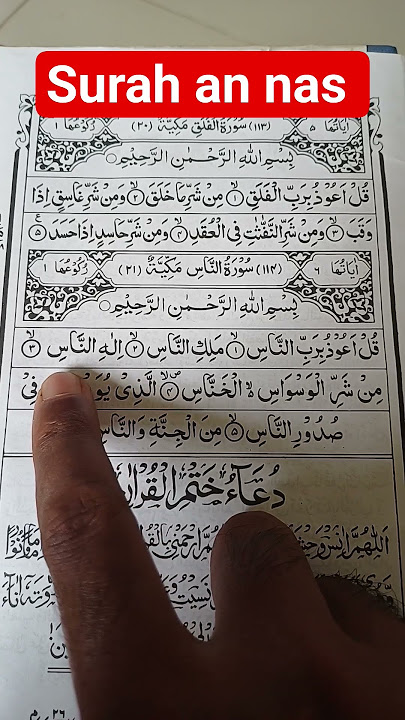 Surah an nas
اٰيَاتُهَا ٥ (١١٣) سُوْرَةُ الْفَلَقِ مَكِّيَّةٌ (٢٠) رُكُوْعُهَا ١
بِسْمِ اللهِ الرَّحْمٰنِ الرَّحِيْمِ
قُلْ اَعُوْذُ بِرَبِّ الْفَلَقِ ١ مِنْ شَرِّ مَا خَلَقَ ٢ وَمِنْ شَرِّ غَاسِقٍ اِذَا
وَقَبَ ٣ وَمِنْ شَرِّ النَّفّٰثٰتِ فِي الْعُقَدِ ٤ وَمِنْ شَرِّ حَاسِدٍ اِذَا حَسَدَ ٥
اٰيَاتُهَا ٦ (١١٤) سُوْرَةُ النَّاسِ مَكِّيَّةٌ (٢١) رُكُوْعُهَا ١
بِسْمِ اللهِ الرَّحْمٰنِ الرَّحِيْمِ
قُلْ اَعُوْذُ بِرَبِّ النَّاسِ ١ مَلِكِ النَّاسِ ٢ اِلٰهِ النَّاسِ ٣
مِنْ شَرِّ الْوَسْوَاسِ الْخَنَّاسِ ٤ الَّذِيْ فِيْ
صُدُوْرِ النَّاسِ ٥ مِنَ الْجِنَّةِ وَالنَّاسِ
دُعَآءُ خَتْمِ الْقُرْاٰنِ
اَللّٰهُمَّ اٰنِسْ
نَسِيْتُ